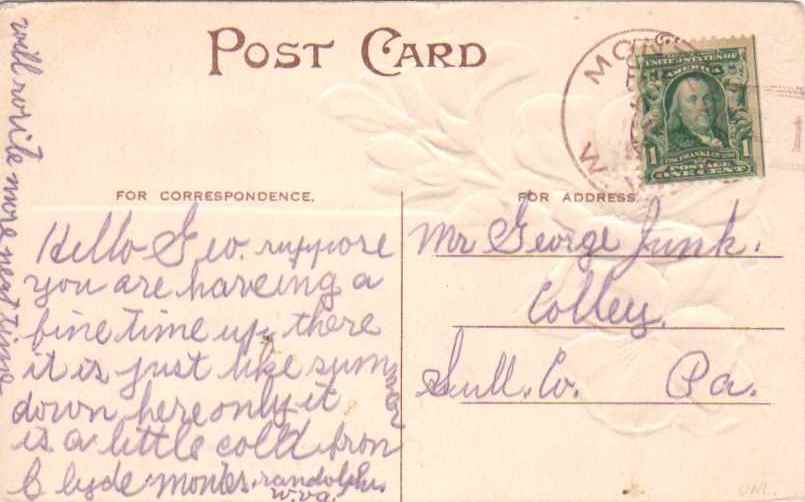 POST CARD
UNITED STATES OF
AMERICA
1 1
POSTAGE
ONE CENT
FOR CORRESPONDENCE.
FOR ADDRESS
Hello Geo. suppose
you are haveing a
fine time up there
it is just like sum
mer
down here only it
is a little cold from
Clyde
randolph
W.va.
will write more next time
Mr George Junk.
Colley.
Sull. Co. Pa.